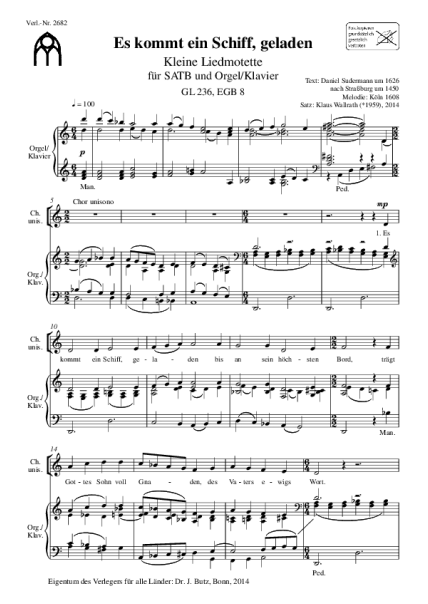 Verl.-Nr. 2682
Es kommt ein Schiff, geladen
Kleine Liedmotette
für SATB und Orgel/Klavier
GL 236, EGB 8
Text: Daniel Sudermann um 1626
nach Straßburg um 1450
Melodie: Köln 1608
Satz: Klaus Wallrath (*1959), 2014
♩ = 100
Orgel/
Klavier
p
Man.
Ped.
5
Chor unisono
mp
Ch.
unis.
1. Es
Org./
Klav.
10
Ch.
unis.
kommt ein Schiff, ge - la - den bis an sein höchs - ten Bord, trägt
Org./
Klav.
Man.
14
Ch.
unis.
Got - tes Sohn voll Gna - den, des Va - ters e - wigs Wort.
Org./
Klav.
Ped.
Eigentum des Verlegers für alle Länder: Dr. J. Butz, Bonn, 2014